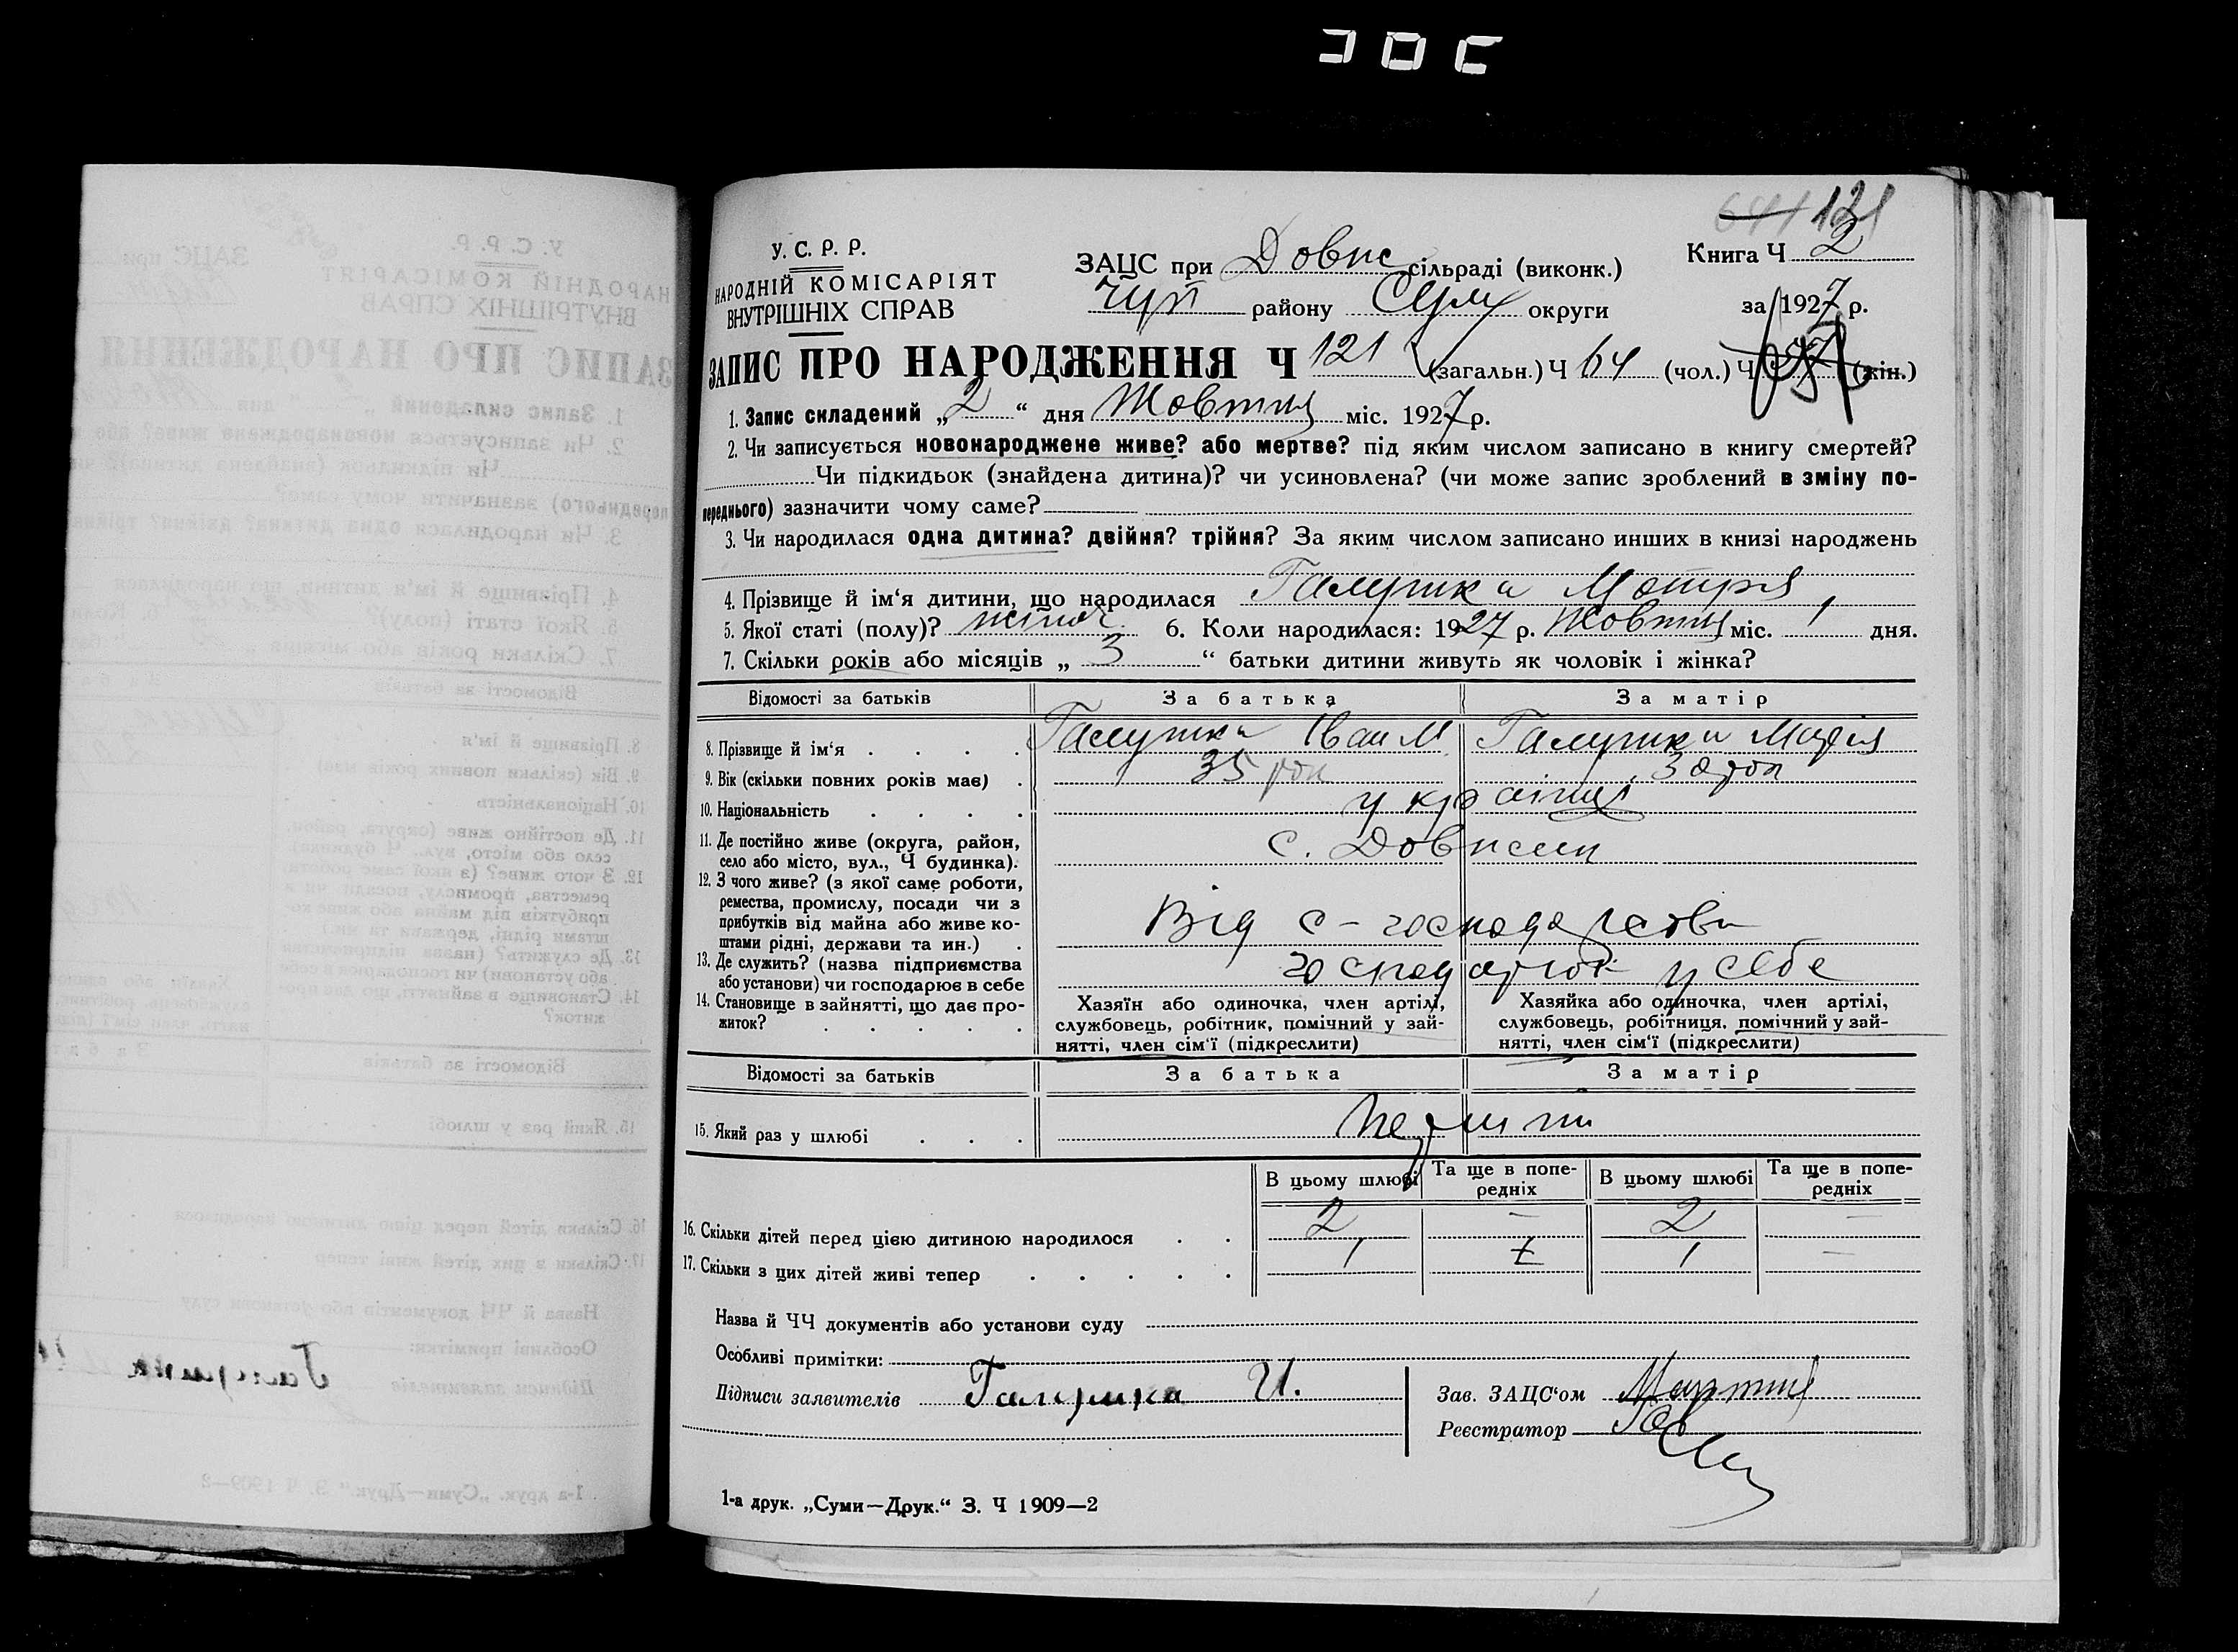 121
У. С. Р. Р.
НАРОДНІЙ КОМІСАРІЯТ
ВНУТРІШНІХ СПРАВ
ЗАЦС при Довпс сільраді (виконк.)
Чуп району Сум округи
Книга Ч 2
за 1927 р.
ЗАПИС ПРО НАРОДЖЕННЯ Ч 121 (загальн.) Ч 64 (чол.) Ч (жін.)
1. Запис складений „2“ дня Жовтня міс. 1927 р.
2. Чи записується новонароджене живе? або мертве? під яким числом записано в книгу смертей?
Чи підкидьок (знайдена дитина)? чи усиновлена? (чи може запис зроблений в зміну по-
переднього) зазначити чому саме?
3. Чи народилася одна дитина? двійня? трійня? За яким числом записано инших в книзі народжень
4. Прізвище й ім‘я дитини, що народилася Галушка Мотря
5. Якої статі (полу)? жіноч. 6. Коли народилася: 1927 р. Жовтня міс. 1 дня.
7. Скільки років або місяців „ 3 “ батьки дитини живуть як чоловік і жінка?
Відомості за батьків За батька За матір
8. Прізвище й ім‘я . . . . Галушка Іван М Галушка Марія
9. Вік (скільки повних років має) . 35 рок 30 рок
10. Національність . . . . українці
11. Де постійно живе (округа, район,
село або місто, вул., Ч будинка). с.
12. З чого живе? (з якої саме роботи,
ремества, промислу, посади чи з
прибутків від майна або живе ко-
штами рідні, держави та ин.) . Від с-господарства
13. Де служить? (назва підприємства
або установи) чи господарює в себе у себе
14. Становище в зайнятті, що дає про-
житок? . . . . .
Хазяїн або одиночка, член артілі,
службовець, робітник, помічний у зай-
нятті, член сім‘ї (підкреслити)
Хазяйка або одиночка, член артілі,
службовець, робітниця, помічний у зай-
нятті, член сім‘ї (підкреслити)
Відомості за батьків За батька За матір
15. Який раз у шлюбі . . .
В цьому шлюбі Та ще в попе-
редніх В цьому шлюбі Та ще в попе-
редніх
16. Скільки дітей перед цією дитиною народилося . . 2 — 2 —
17. Скільки з цих дітей живі тепер . . . . . 1 1 —
Назва й ЧЧ документів або установи суду
Особливі примітки:
Підписи заявителів Галушка И.
Зав. ЗАЦС‘ом
Реєстратор
1-а друк. „Суми—Друк.“ З. Ч 1909—2